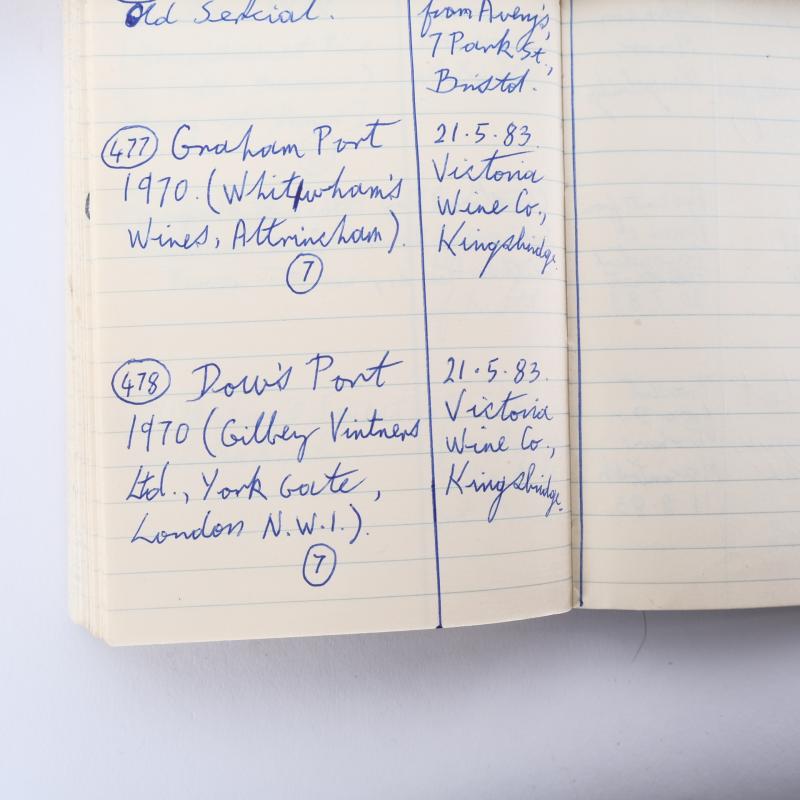 Old Sercial.
from Avery's,
7 Park St.,
Bristol.
477 Graham Port
1970. (Whitwham's
Wines, Altrincham).
7
21.5.83.
Victoria
Wine Co.,
Kingsbridge.
478 Dow's Port
1970 (Gilbey Vintners
Ltd., York Gate,
London N.W.1.).
7
21.5.83.
Victoria
Wine Co.,
Kingsbridge.